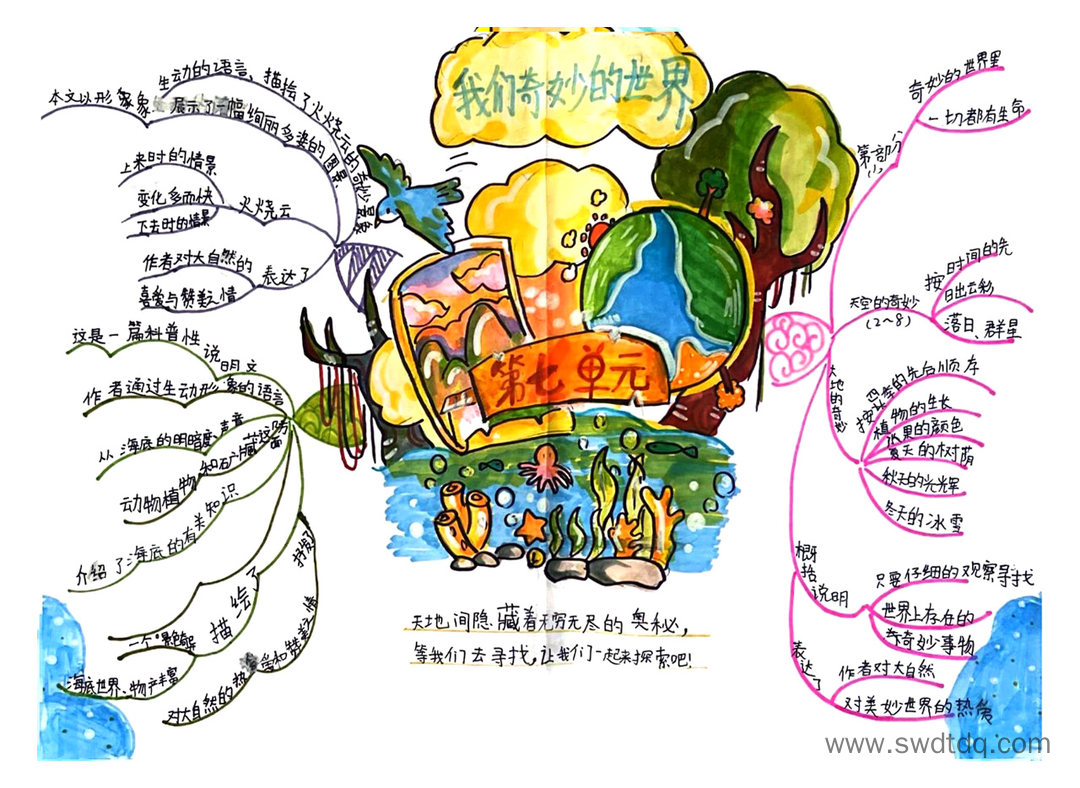 我们奇妙的世界
第七单元
生动的语言，描绘了火烧云的奇妙景象
本文以形象
展示了一幅绚丽多姿的图景
火烧云
上来时的情景
变化多而快
下去时的情景
表达了
作者对大自然的
喜爱与赞美之情
这是一篇科普性
说明文
作者通过生动形象的语言
从海底的明暗度、声音
动物植物和矿藏这
介绍了海底的有关知识
描绘了
一个景色
海底世界、物产丰富
抒发了
对大自然的热爱和赞美之情
第一部分
(1)
奇妙的世界里
一切都有生命
天空的奇妙
(2~8)
按时间的先
日出云彩
落日、群星
大地的奇妙
按四季的先后顺序
植物的生长
水果的颜色
夏天的树荫
秋天的光辉
冬天的冰雪
概括说明
只要仔细的观察寻找
世界上存在的
奇妙事物
表达了
作者对大自然
对美妙世界的热爱
天地间隐藏着无穷无尽的奥秘，
等我们去寻找，让我们一起来探索吧！
www.swdtdq.com